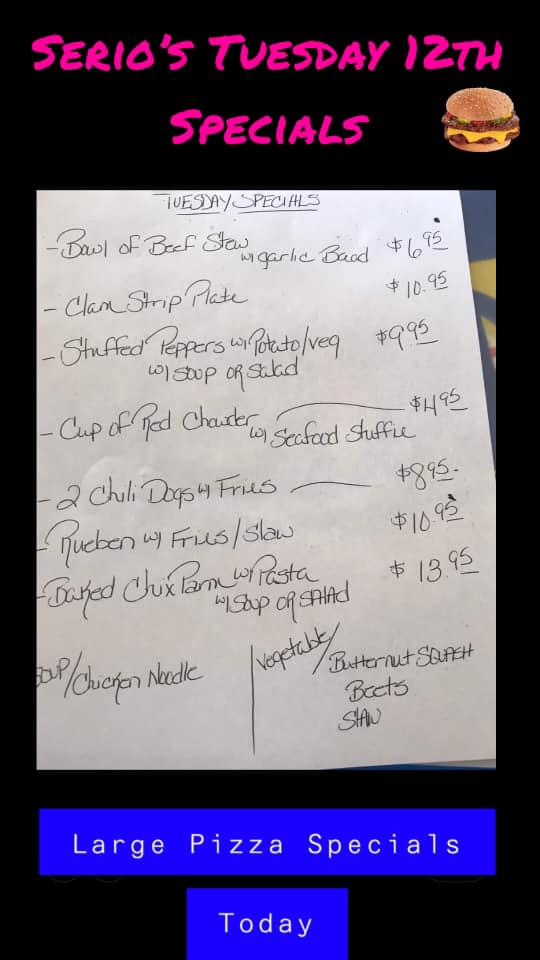 Serio's Tuesday 12th
Specials
TUESDAY SPECIALS
- Bowl of Beef Stew w/ garlic Baad $6.95
- Clam Strip Plate $10.95
- Stuffed Peppers w/ Potato/veg $9.95
w/ soup OR Salad
- Cup of Red Chowder $4.95
w/ Seafood Stuffie
- 2 Chili Dogs w/ Fries $8.95
- Rueben w/ Fries/Slaw $10.95
- Baked Chix Parm w/ Pasta $13.95
w/ Soup OR SALAd
SOUP/Chicken Noodle
Vegetable/Butternut SQUASH
Beets
Slaw
Large Pizza Specials
Today